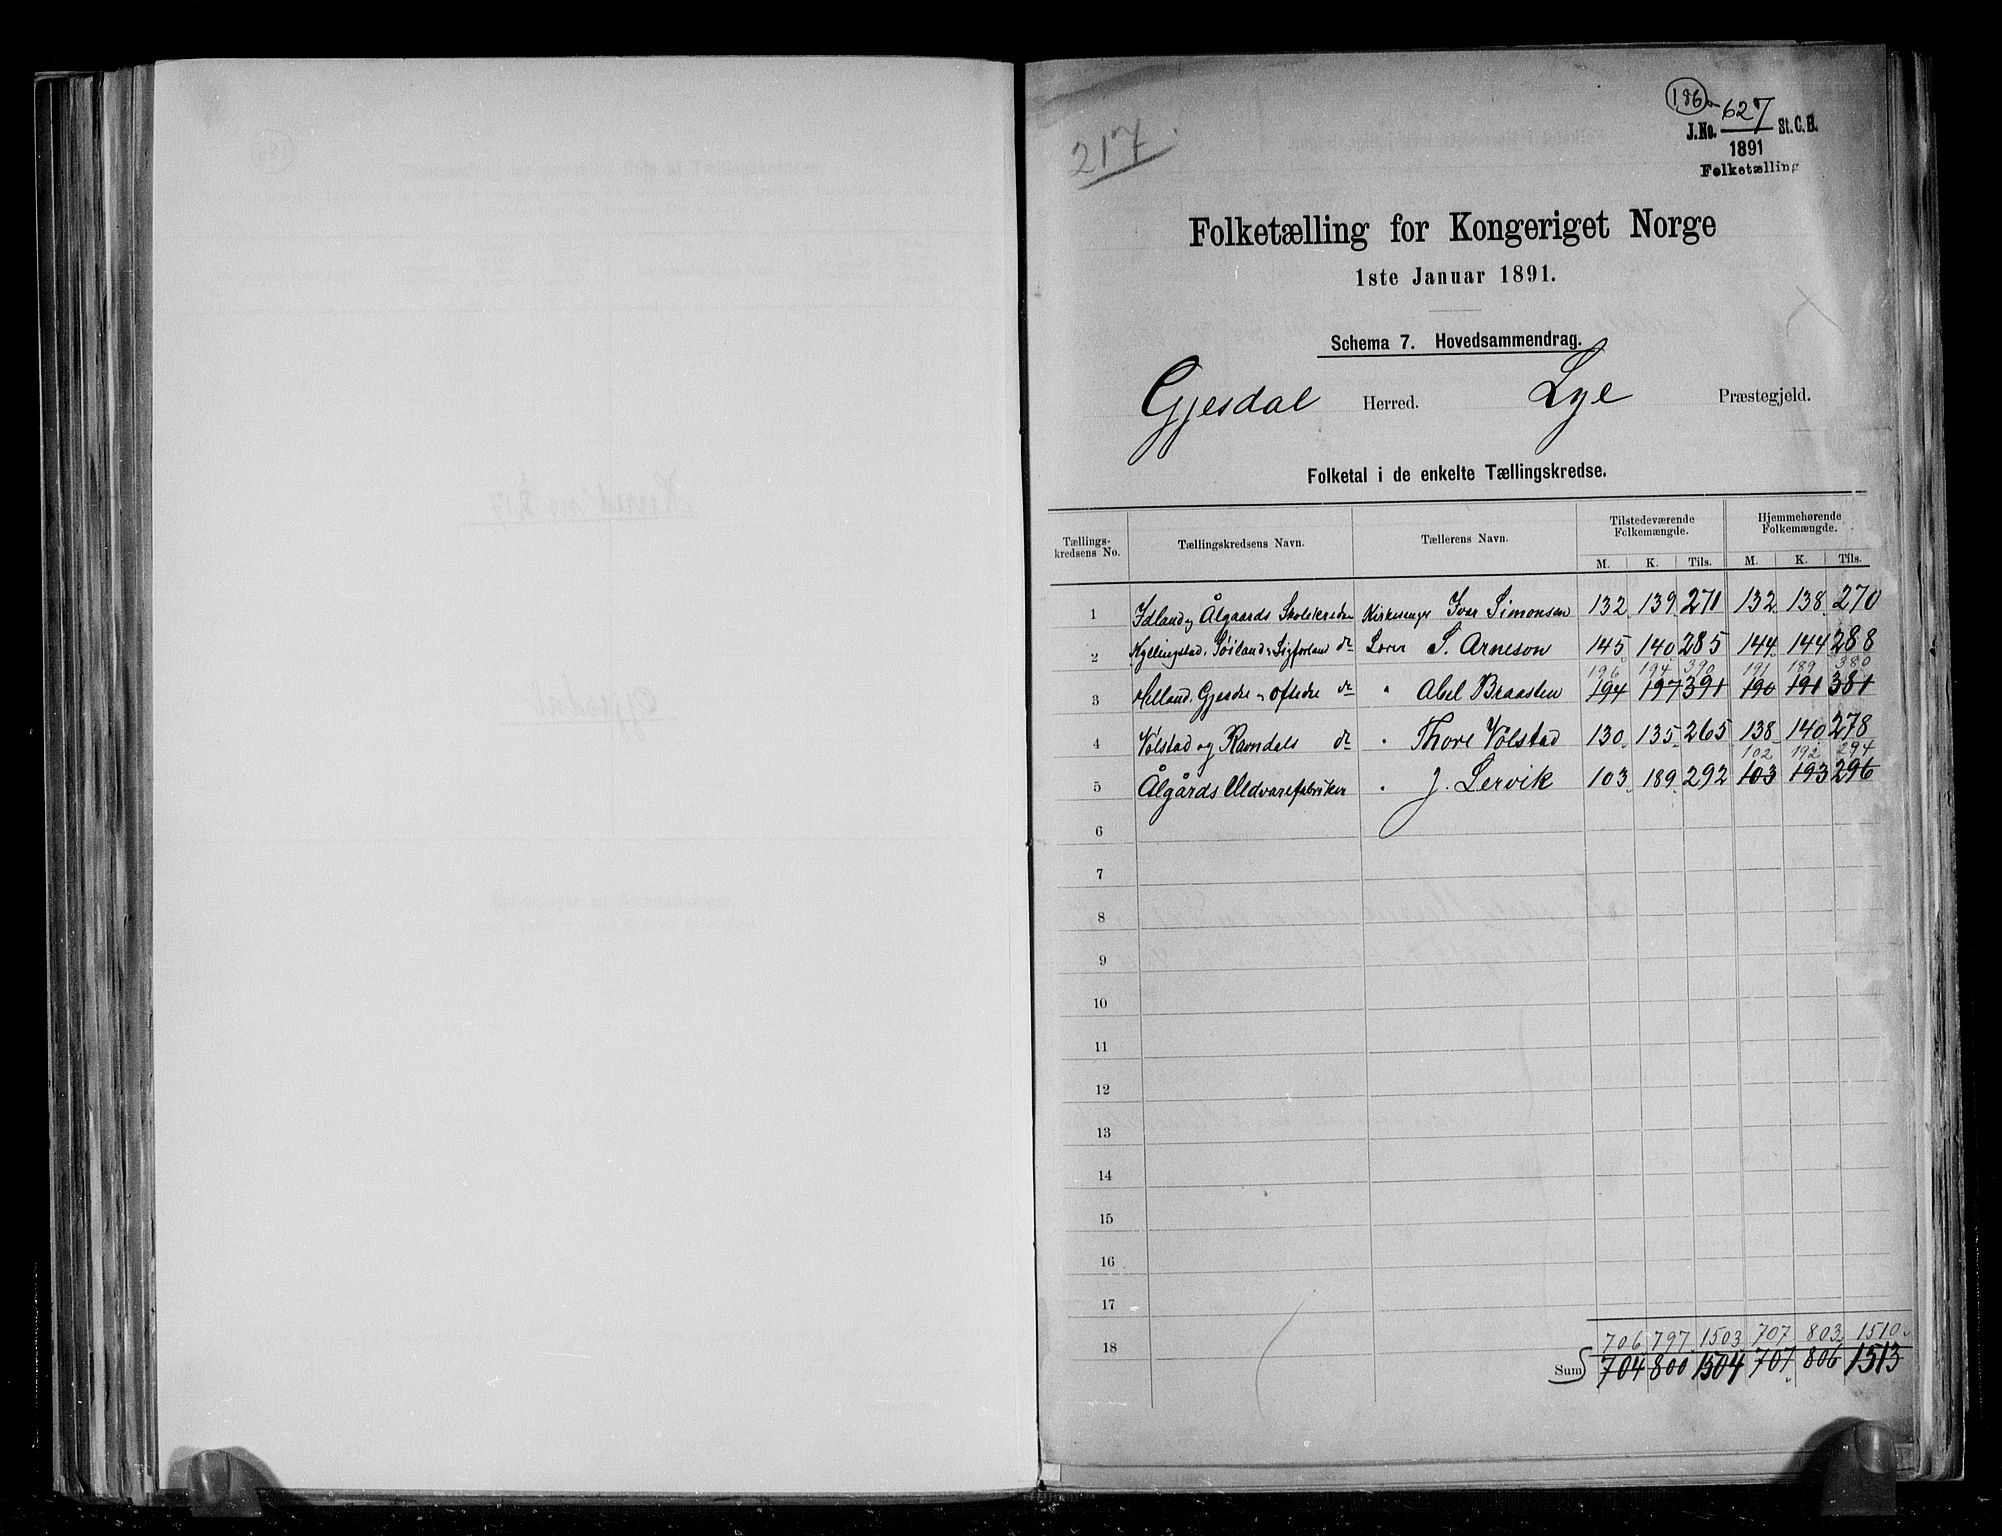 186
217.
J.No. 627 St. C. B.
1891
Folketælling
Folketælling for Kongeriget Norge
1ste Januar 1891.
Schema 7. Hovedsammendrag.
Gjesdal Herred. Lye Præstegjeld.
Folketal i de enkelte Tællingskredse.
Tællings-kredsens No. Tællingskredsens Navn. Tællerens Navn. Tilstedeværende Folkemængde. Hjemmehørende Folkemængde.
M. K. Tils. M. K. Tils.
1 Ålgaards Skolekreds Kirkesanger Ivar Simonsen 132 139 271 132 138 270
2 Kyllingstad, Söiland dº Lærer S. Arneson 145 140 285 144 144 288
196 194 390 191 189 380
3 Helland, Gjesdal og Oftedal dº " Abel Braasten 194 197 391 190 191 381
4 Völstad og Ravndals dº " Thore Völstad 130 135 265 138 140 278
102 192 294
5 Ålgårds Uldvarefabriker " J. Lervik 103 189 292 103 193 296
6
7
8
9
10
11
12
13
14
15
16
17
18
706 797 1503 707 803 1510
Sum 704 800 1504 707 806 1513